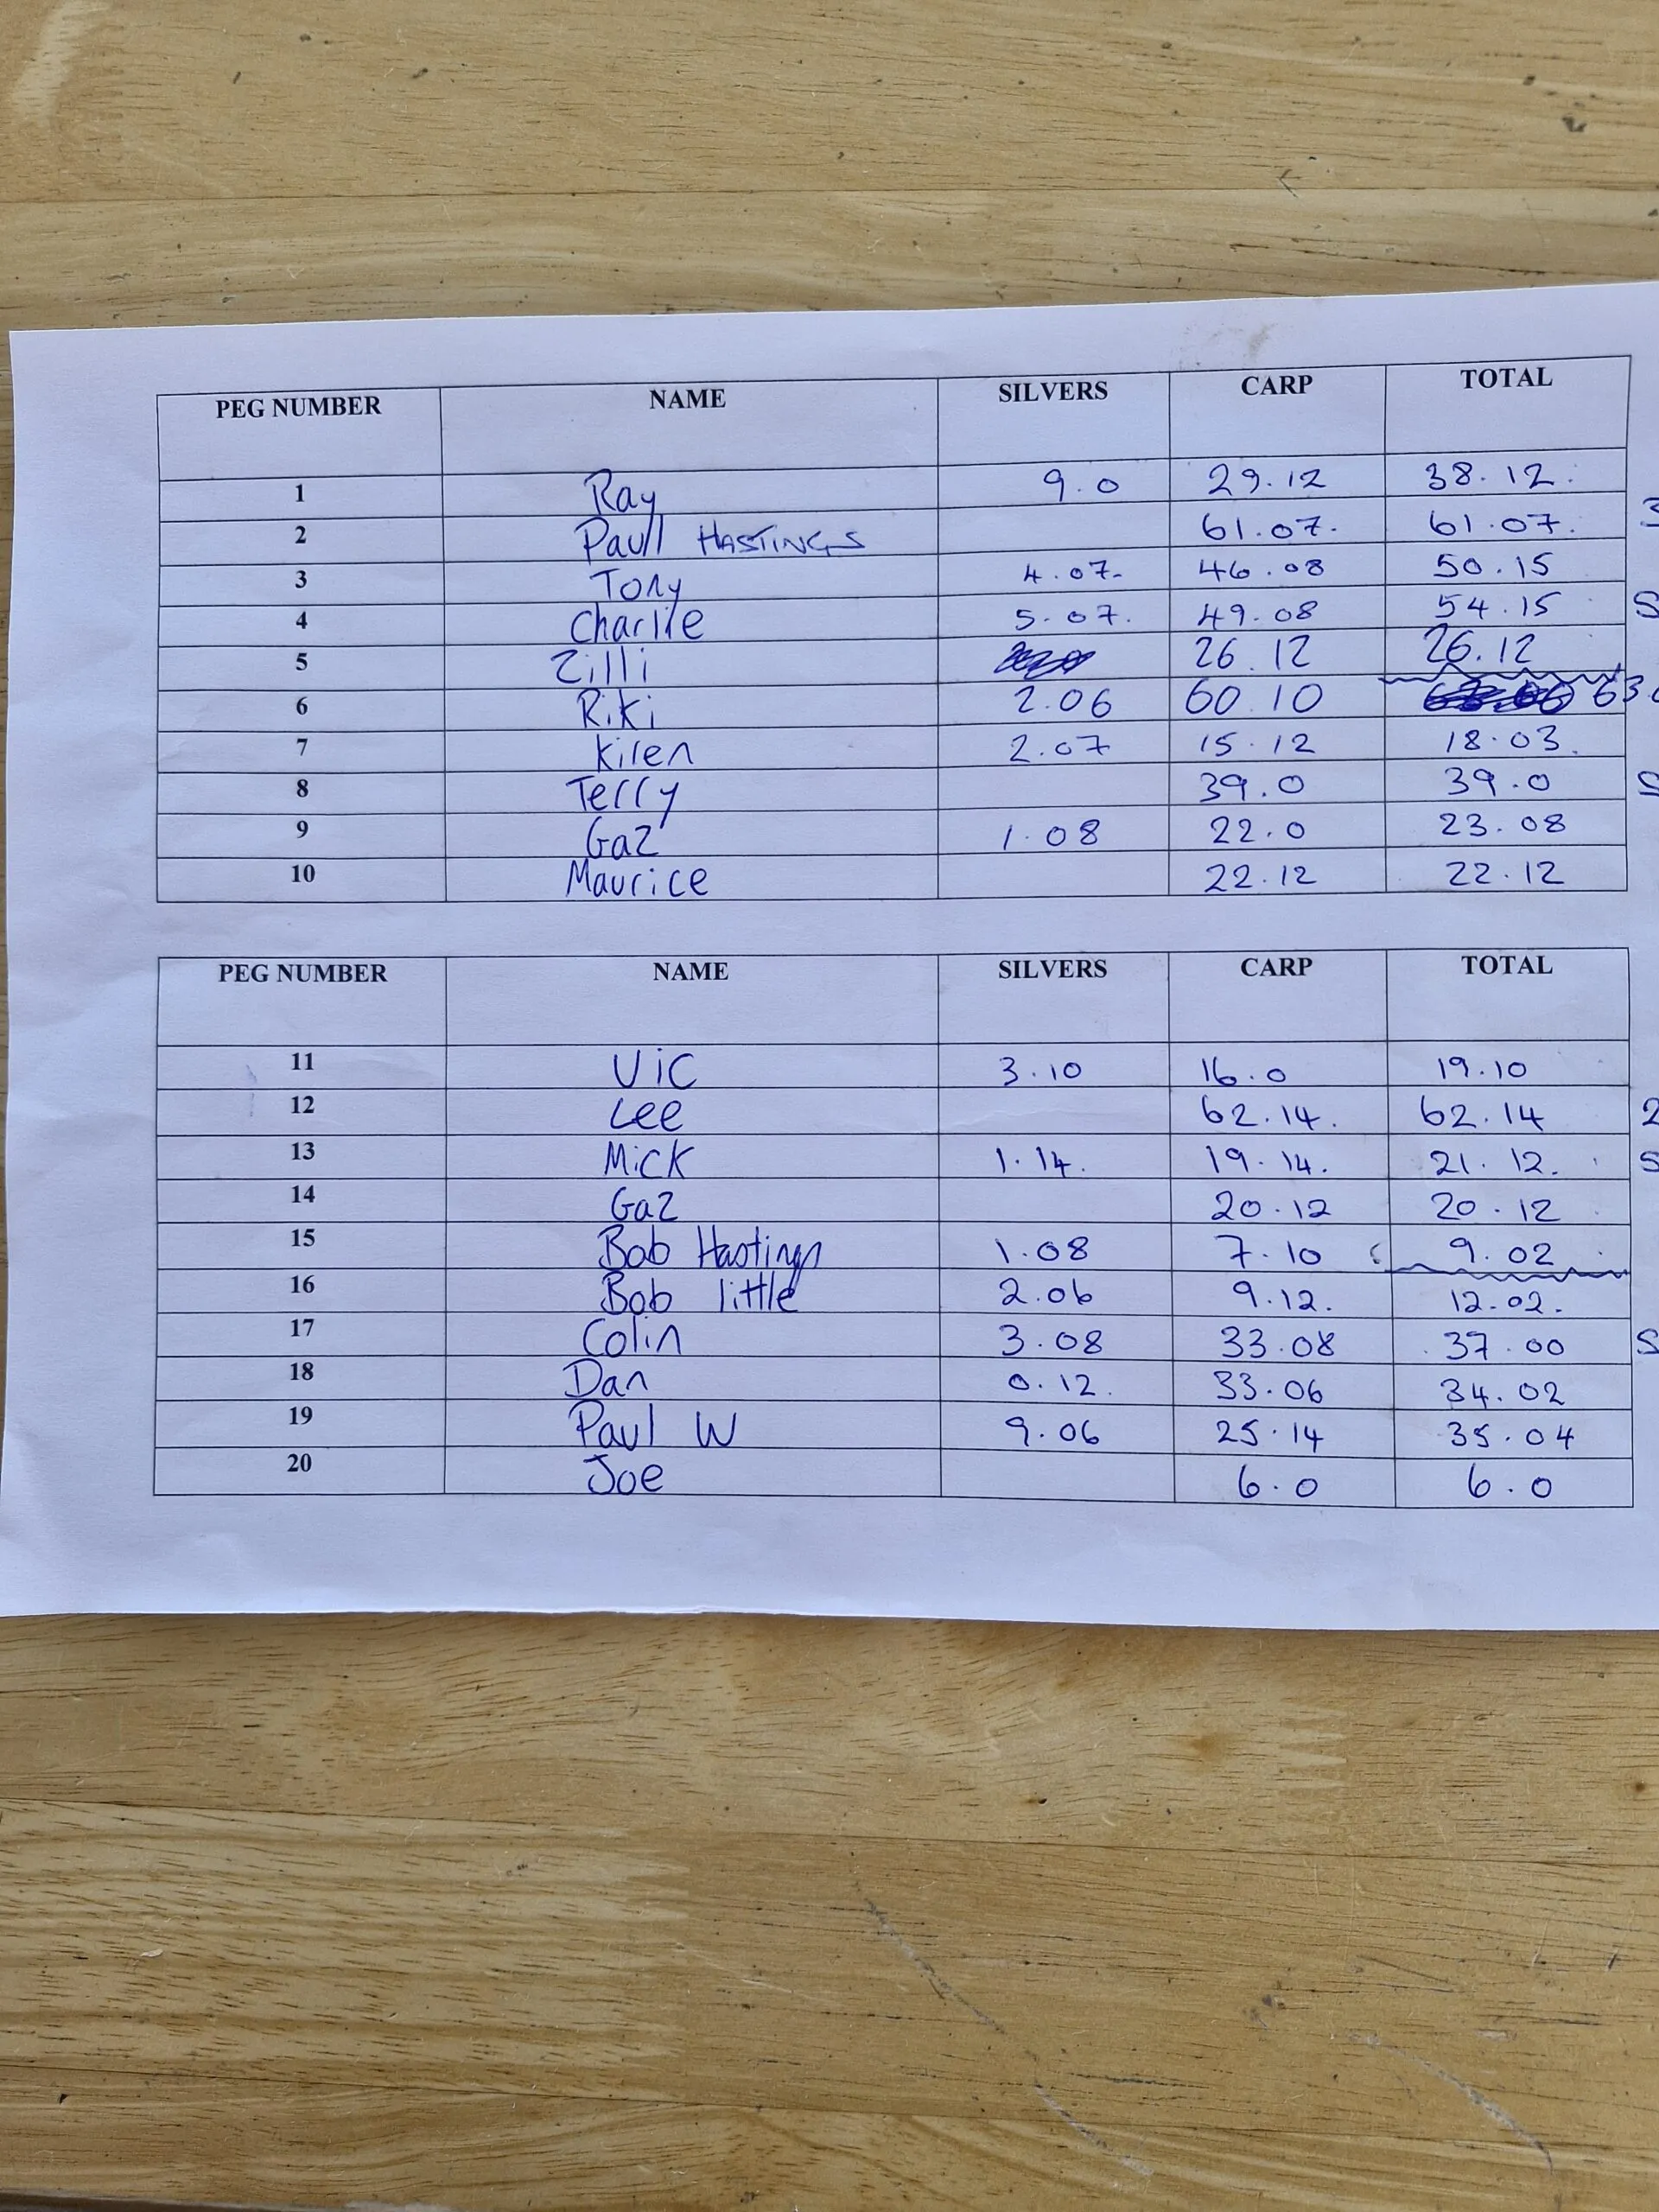 PEG NUMBER NAME SILVERS CARP TOTAL
1 Ray 9.0 29.12 38.12.
2 Paul HASTINGS 61.07. 61.07. 3
3 Tony 4.07. 46.08 50.15
4 Charlie 5.07. 49.08 54.15 S
5 Zilli 26.12 26.12
6 Riki 2.06 60.10 63.0
7 Kiren 2.07 15.12 18.03.
8 Terry 39.0 39.0 S
9 Gaz 1.08 22.0 23.08
10 Maurice 22.12 22.12
PEG NUMBER NAME SILVERS CARP TOTAL
11 Vic 3.10 16.0 19.10
12 Lee 62.14. 62.14 2
13 Mick 1.14. 19.14. 21.12. S
14 Gaz 20.12 20.12
15 Bob Hastings 1.08 7.10 9.02
16 Bob little 2.06 9.12. 12.02.
17 Colin 3.08 33.08 37.00 S
18 Dan 0.12. 33.06 34.02
19 Paul W 9.06 25.14 35.04
20 Joe 6.0 6.0